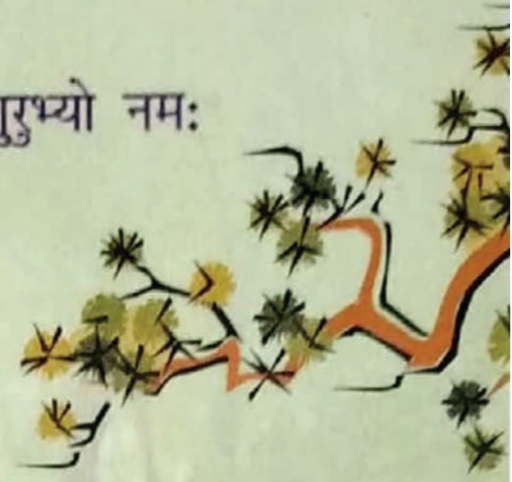 गुरुभ्यो नमः